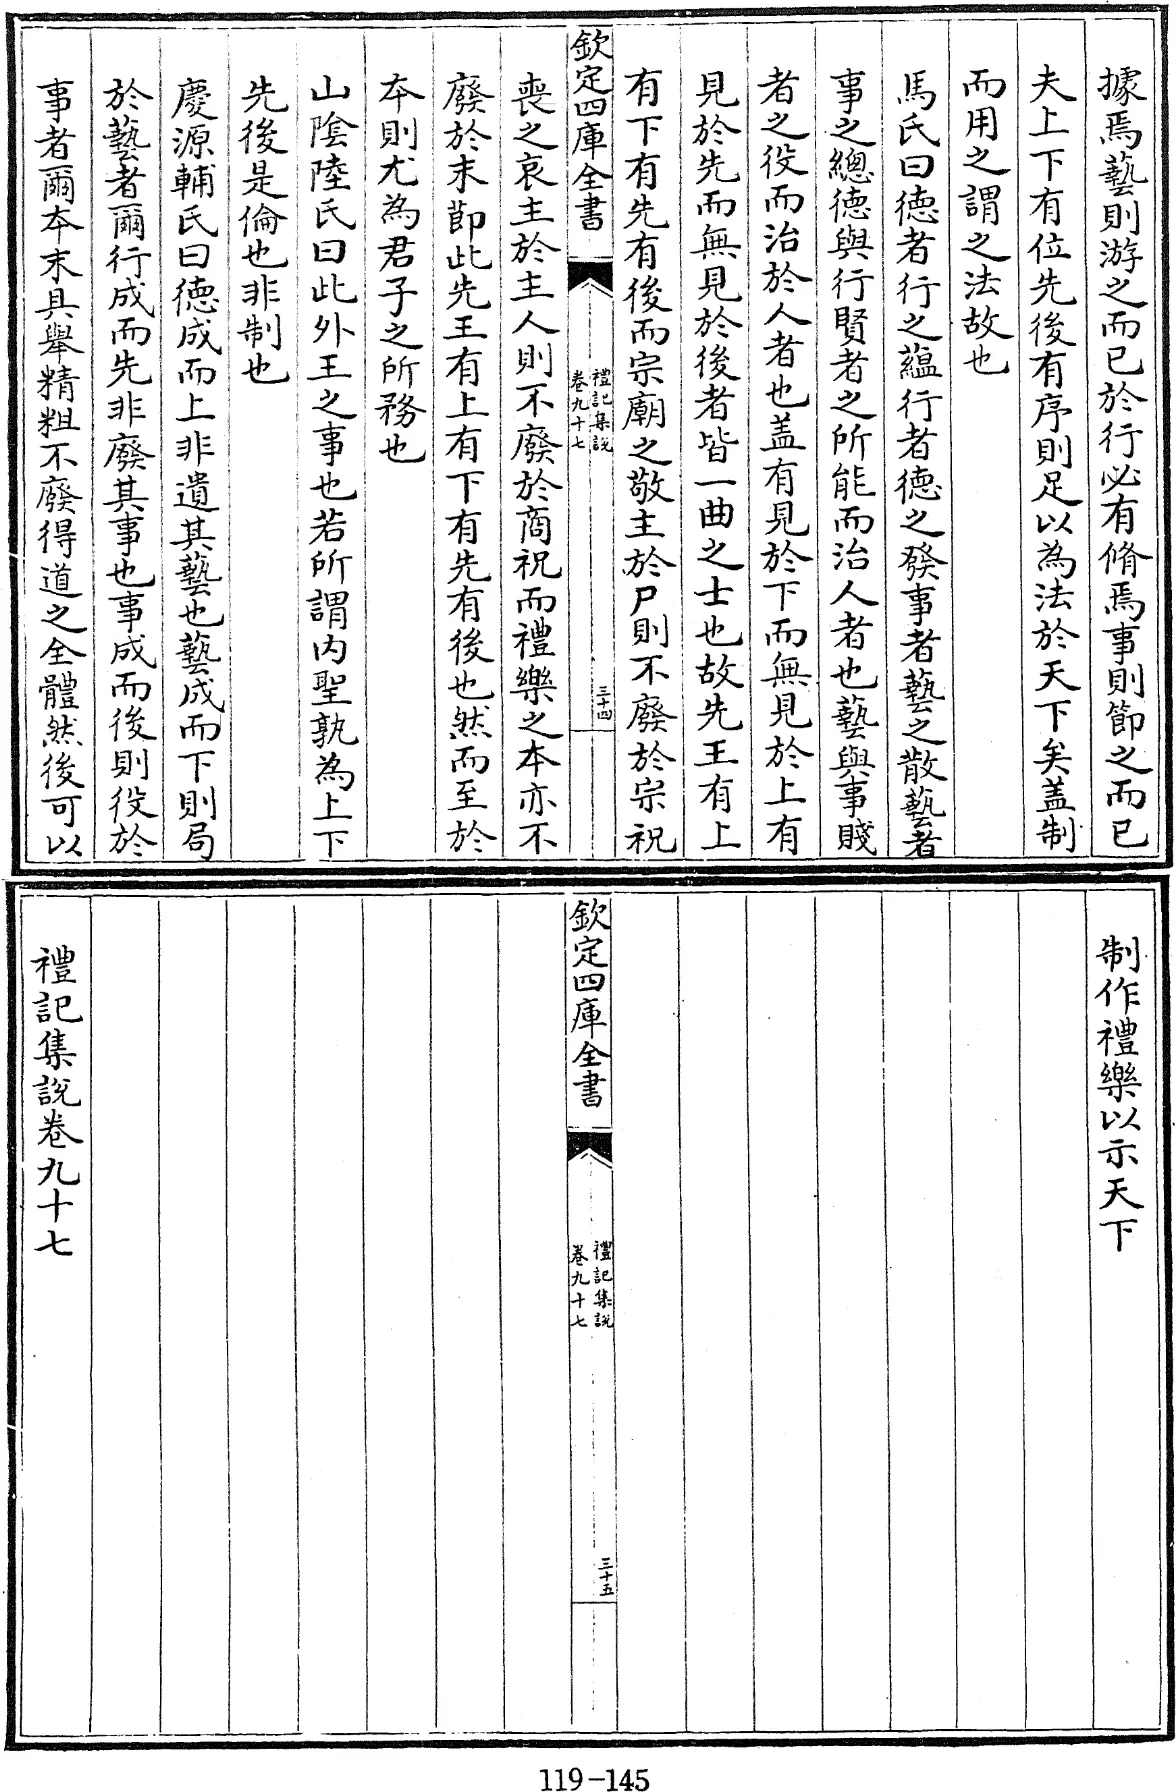 據焉藝則游之而已於行必有脩焉事則節之而已
夫上下有位先後有序則足以為法於天下矣盖制
而用之謂之法故也
馬氏曰德者行之藴行者德之發事者藝之散藝者
事之總德與行賢者之所能而治人者也藝與事賤
者之役而治於人者也盖有見於下而無見於上有
見於先而無見於後者皆一曲之士也故先王有上
有下有先有後而宗廟之敬主於尸則不廢於宗祝
欽定四庫全書
禮記集說
卷九十七
三十四
喪之哀主於主人則不廢於商祝而禮樂之本亦不
廢於末節此先王有上有下有先有後也然而至於
本則尤為君子之所務也
山陰陸氏曰此外王之事也若所謂内聖孰為上下
先後是倫也非制也
慶源輔氏曰德成而上非遺其藝也藝成而下則局
於藝者爾行成而先非廢其事也事成而後則役於
事者爾本末具舉精粗不廢得道之全體然後可以
制作禮樂以示天下
欽定四庫全書
禮記集說
卷九十七
三十五
禮記集說卷九十七
119-145